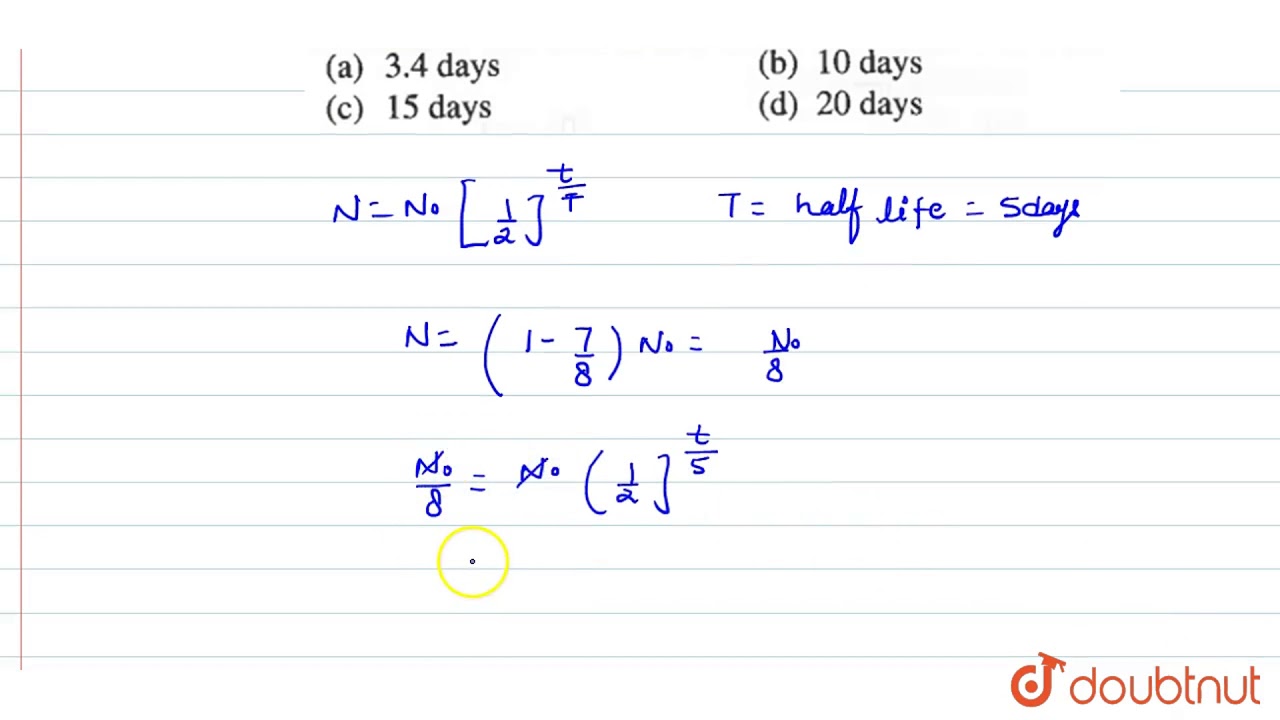 (a) 3.4 days (b) 10 days
(c) 15 days (d) 20 days
N = N₀ [1/2]^(t/T) T = half life = 5days
N = (1 - 7/8) N₀ = N₀/8
N₀/8 = N₀ (1/2]^(t/5)
doubtnut